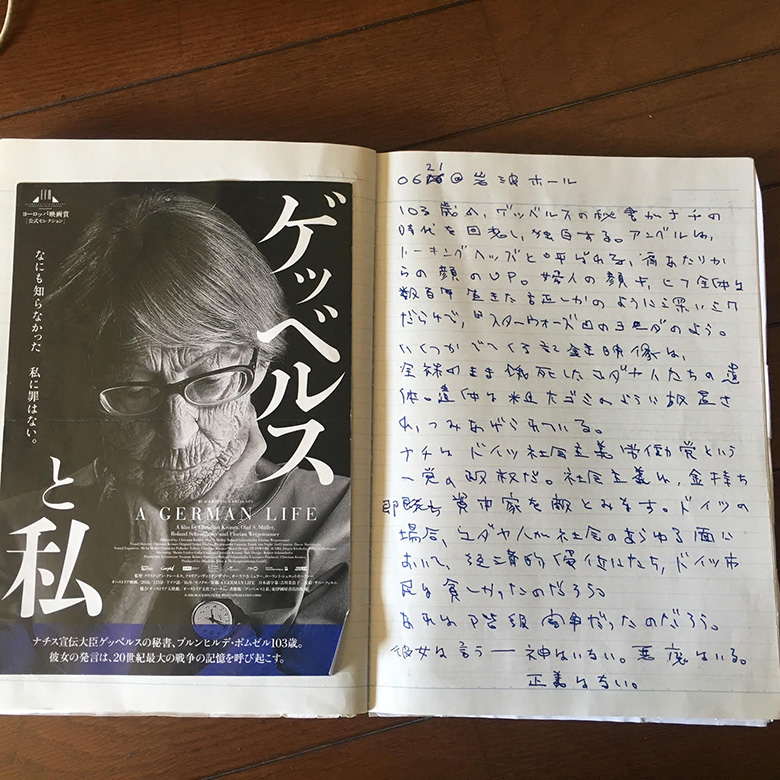 ヨーロッパ映画賞
公式セレクション
なにも知らなかった 私に罪はない。
ゲッベルス
と私
A GERMAN LIFE
A film by Christian Krönes, Olaf S. Müller,
Roland Schrotthofer and Florian Weigensamer
ナチス宣伝大臣ゲッベルスの秘書、ブルンヒルデ・ポムゼル103歳。
彼女の発言は、20世紀最大の戦争の記憶を呼び起こす。
06 21 @ 岩波ホール
103歳の、ゲッベルスの秘書がナチの
時代を回想し、独白する。アングルは、
トーキングヘッズと呼ばれる、肩あたりか
らの顔のUP。婦人の顔は、
数百年生きた のように深いシワ
だらけで、スターウォーズのヨーダのよう。
いくつかでてくる記録映像は、
全裸のまま餓死したユダヤ人たちの遺
体。遺体は粗大ゴミのように放置さ
れ、つみあげられている。
ナチは ドイツ社会主義労働党という
一党の政権だ。社会主義は、金持ち
即ち資本家を敵とみます。ドイツの
場合、ユダヤ人が社会のあらゆる面に
おいて、経済的優位にたち、ドイツ市
民は貧しかったのだろう。
あれは階級闘争だったのだろう。
彼女は言う ― 神はいない。悪魔はいる。
正義はない。